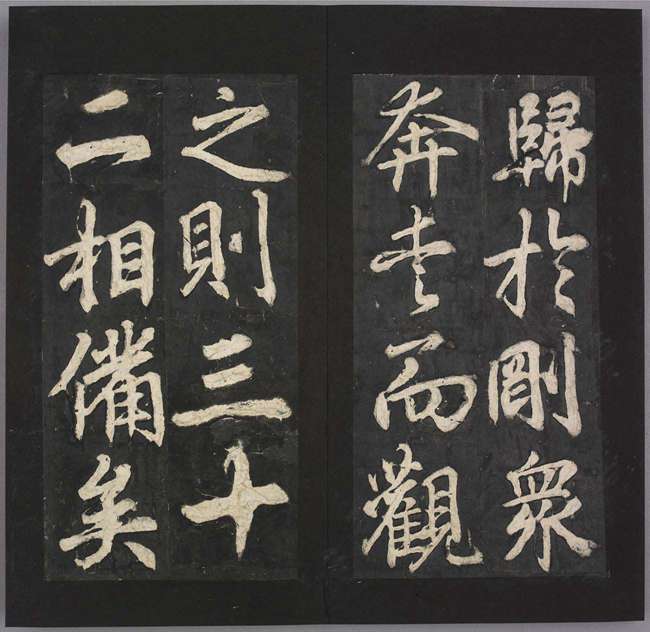 歸於剛衆
奔走而觀
之則三十
二相備矣